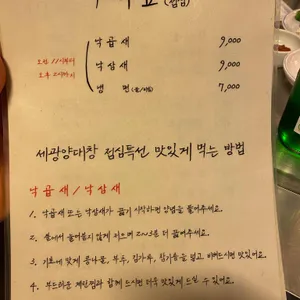 (점심)
낙곱새 9,000
오전 11시부터
낙삼새 9,000
냉면 7,000
세광양대창 점심특선 맛있게 먹는 방법
낙곱새 / 낙삼새
1. 낙곱새 또는 낙삼새가 끓기 시작하면 양념을 풀어주세요.
2. 눌어붙지 않게 저으며 2~3분 더 끓여주세요.
3. 기호에 맞게 콩나물, 부추, 김가루, 참기름을 넣고 비벼드시면 맛있어요.
4. 부드러운 계란찜과 함께 드시면 더욱 맛있게 드실 수 있어요.